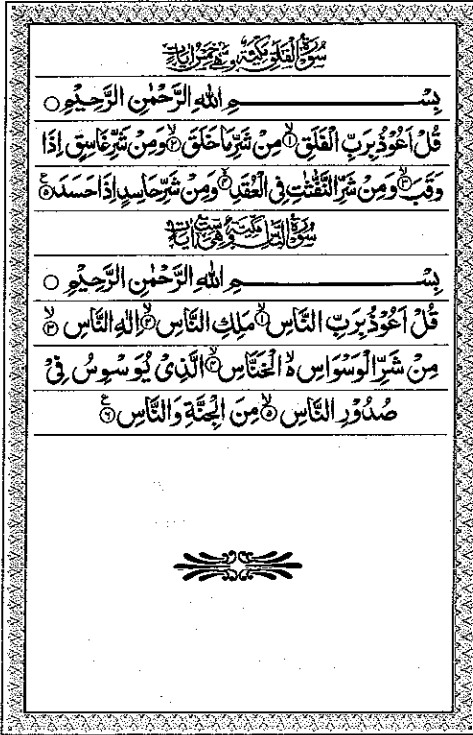 سُوْرَةُ الْفَلَقِ مَكِّيَّةٌ وَّهِيَ خَمْسُ اٰيَاتٍ
بِسْمِ اللهِ الرَّحْمٰنِ الرَّحِيْمِ ○
قُلْ اَعُوْذُ بِرَبِّ الْفَلَقِ ۙ﴿۱﴾ مِنْ شَرِّ مَا خَلَقَ ۙ﴿۲﴾ وَمِنْ شَرِّ غَاسِقٍ اِذَا
وَقَبَ ۙ﴿۳﴾ وَمِنْ شَرِّ النَّفّٰثٰتِ فِى الْعُقَدِ ۙ﴿۴﴾ وَمِنْ شَرِّ حَاسِدٍ اِذَا حَسَدَ ﴿۵﴾ ع
سُوْرَةُ النَّاسِ مَكِّيَّةٌ وَّهِيَ سِتُّ اٰيَاتٍ
بِسْمِ اللهِ الرَّحْمٰنِ الرَّحِيْمِ ○
قُلْ اَعُوْذُ بِرَبِّ النَّاسِ ۙ﴿۱﴾ مَلِكِ النَّاسِ ۙ﴿۲﴾ اِلٰهِ النَّاسِ ۙ﴿۳﴾
مِنْ شَرِّ الْوَسْوَاسِ ۙ۬ الْخَنَّاسِ ۙ﴿۴﴾ الَّذِىْ يُوَسْوِسُ فِىْ
صُدُوْرِ النَّاسِ ۙ﴿۵﴾ مِنَ الْجِنَّةِ وَ النَّاسِ ﴿۶﴾ ع